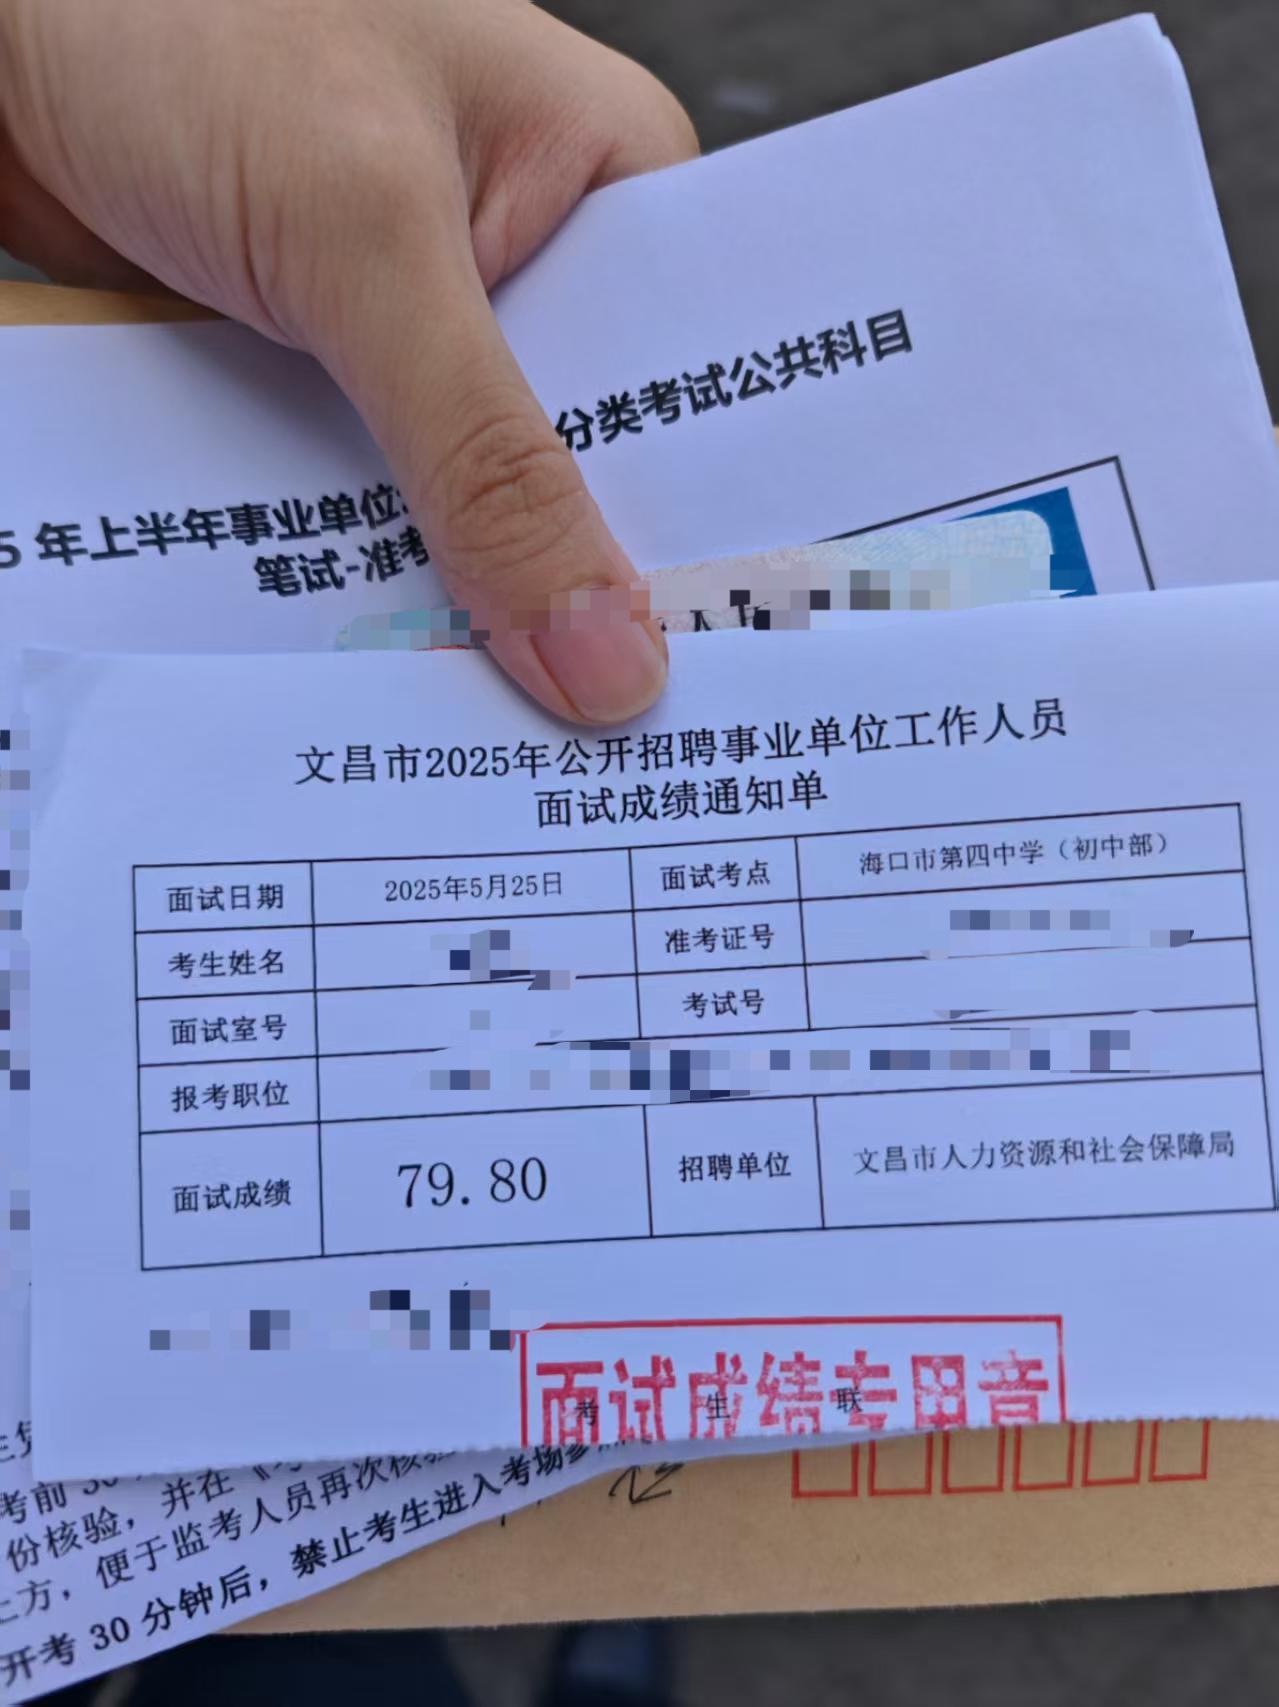 分类考试公共科目
5 年上半年事业单位
笔试-准考
文昌市2025年公开招聘事业单位工作人员
面试成绩通知单
面试日期 2025年5月25日 面试考点 海口市第四中学（初中部）
考生姓名 准考证号
面试室号 考试号
报考职位
面试成绩 79.80 招聘单位 文昌市人力资源和社会保障局
面试成绩专用章
考 生 联
考前 30
份核验，并在《
上方，便于监考人员再次核验
开考 30 分钟后，禁止考生进入考场参